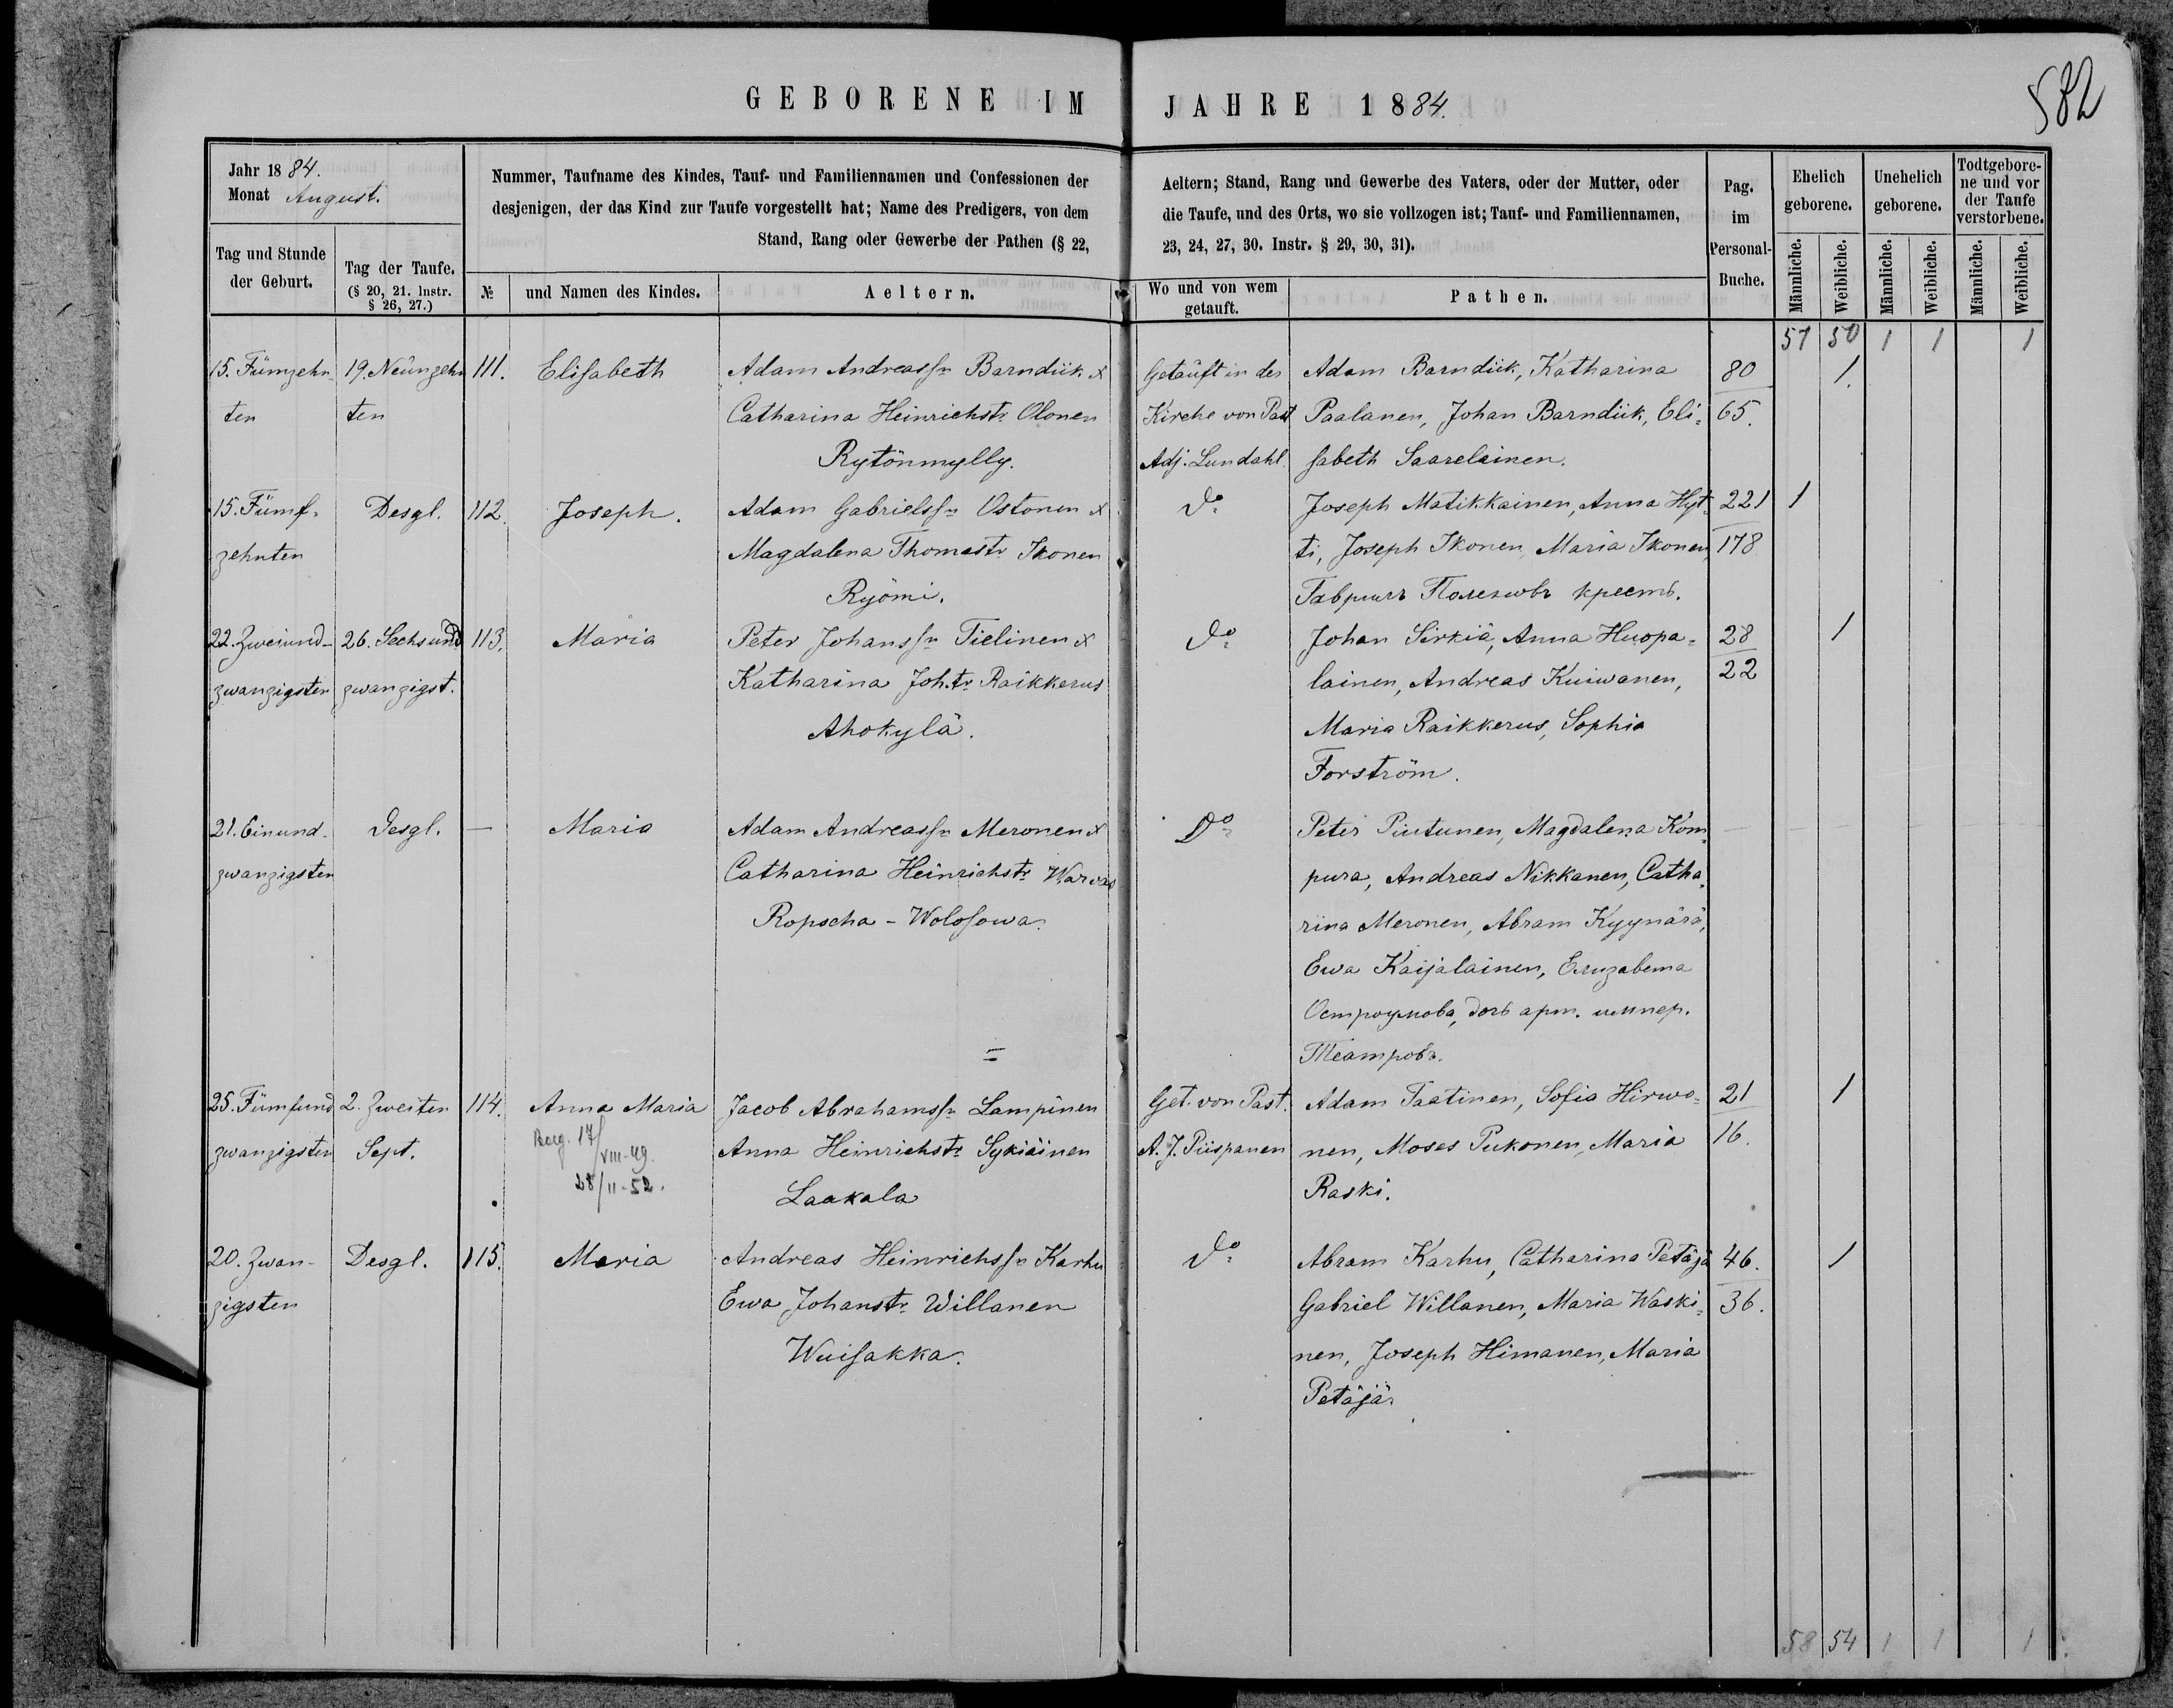 582
GEBORENE IM JAHRE 1884.
Jahr 1884.
Monat August.
Nummer, Taufname des Kindes, Tauf- und Familiennamen und Confessionen der Aeltern; Stand, Rang und Gewerbe des Vaters, oder der Mutter, oder
desjenigen, der das Kind zur Taufe vorgestellt hat; Name des Predigers, von dem die Taufe, und des Orts, wo sie vollzogen ist; Tauf- und Familiennamen,
Stand, Rang oder Gewerbe der Pathen (§ 22, 23, 24, 27, 30. Instr. § 29, 30, 31).
Tag und Stunde der Geburt.
Tag der Taufe.
(§ 20, 21. Instr. § 26, 27.)
№ und Namen des Kindes.
Aeltern.
Wo und von wem getauft.
Pathen.
Pag. im Personal-Buche.
Ehelich geborene.
Unehelich geborene.
Todtgeborene und vor der Taufe verstorbene.
Männliche. Weibliche. Männliche. Weibliche. Männliche. Weibliche.
57 50 1 1 1
15. Fümzehn- 19. Neünzehn 111. Elisabeth Adam Andreassn Barndük & Getäuft in der Adam Barndük, Katharina 80 1.
ten ten Catharina Heinrichstr. Olonen Kirche von Past Paalanen, Johan Barndük, Eli- 65.
Rytönmylly. Adj. Lundahl. sabeth Saarelainen.
15. Fümf- Desgl. 112. Joseph. Adam Gabrielssn Ostonen & do Joseph Matikkainen, Anna Hyt- 221 1
zehnten Magdalena Thomastr. Ikonen ti, Joseph Ikonen, Maria Ikonen, 178
Ryömi. Гавриилъ крестб.
22. Zweiund- 26. Sechsund 113. Maria Peter Johanssn Tielinen & do Johan Sirkiä, Anna Huopa- 28 1
zwanzigsten zwanzigst. Katharina Joh.tr. Raikkerus lainen, Andreas Kuiwanen, 22
Ahokylä. Maria Raikkerus, Sophia
Forström.
21. Einund- Desgl. — Maria Adam Andreassn Meronen & Do Peter Piutunen, Magdalena Kom- —
zwanzigsten Catharina Heinrichstr. Warvas pura, Andreas Nikkanen, Catha-
Ropscha - Wolosowa. rina Meronen, Abram Kyynärä,
Ewa Kaijalainen, Елизавета
Остроумова, дочь арт. импер.
Театровъ.
25. Fümfund 2. Zweiten 114. Anna Maria Jacob Abrahamssn Lampinen Get. von Past. Adam Taatinen, Sofia Hirwo- 21 1
zwanzigsten Sept. 17/VIII-49. Anna Heinrichstr. Sykiäinen A. J. Piispanen nen, Moses Pukonen, Maria 16.
28/II-52. Laakala Raski.
20. Zwan- Desgl. 115. Maria Andreas Heinrichssn Karhu do Abram Karhu, Catharina Petäjä 46. 1
zigsten Ewa Johanstr. Willanen Gabriel Willanen, Maria Waski- 36.
Wuisakka. nen, Joseph Himanen, Maria
Petäjä.
58 54 1 1 1